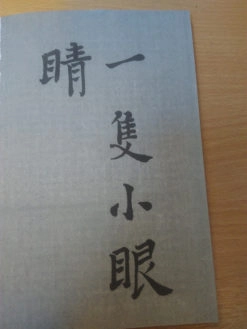 一隻小眼
睛